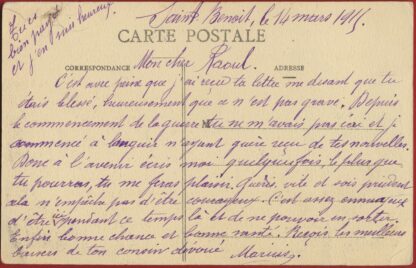 Tu es
bien payé
et j'en suis heureux
Saint Benoit, le 14 mars 1915.
CARTE POSTALE
CORRESPONDANCE
ADRESSE
Mon cher Raoul.
C'est avec peine que j'ai reçu ta lettre me disant que tu
étais blessé, heureusement que ce n'est pas grave. Depuis
le commencement de la guerre tu ne m'avais pas écri et j
commencé à languir n'ayant guère reçu de tes nouvelles.
Donc à l'avenir écris moi quelques fois, le plus que
tu pourras, tu me feras plaisir. Guéris vite et sois prudent
cela n'empêche pas d'être courageux. C'est assez ennuyeux
d'être pendant ce temps là et de ne pouvoir en sortir.
Enfin bonne chance et bonne santé. Reçois les meilleurs
baisers de ton cousin dévoué Marius